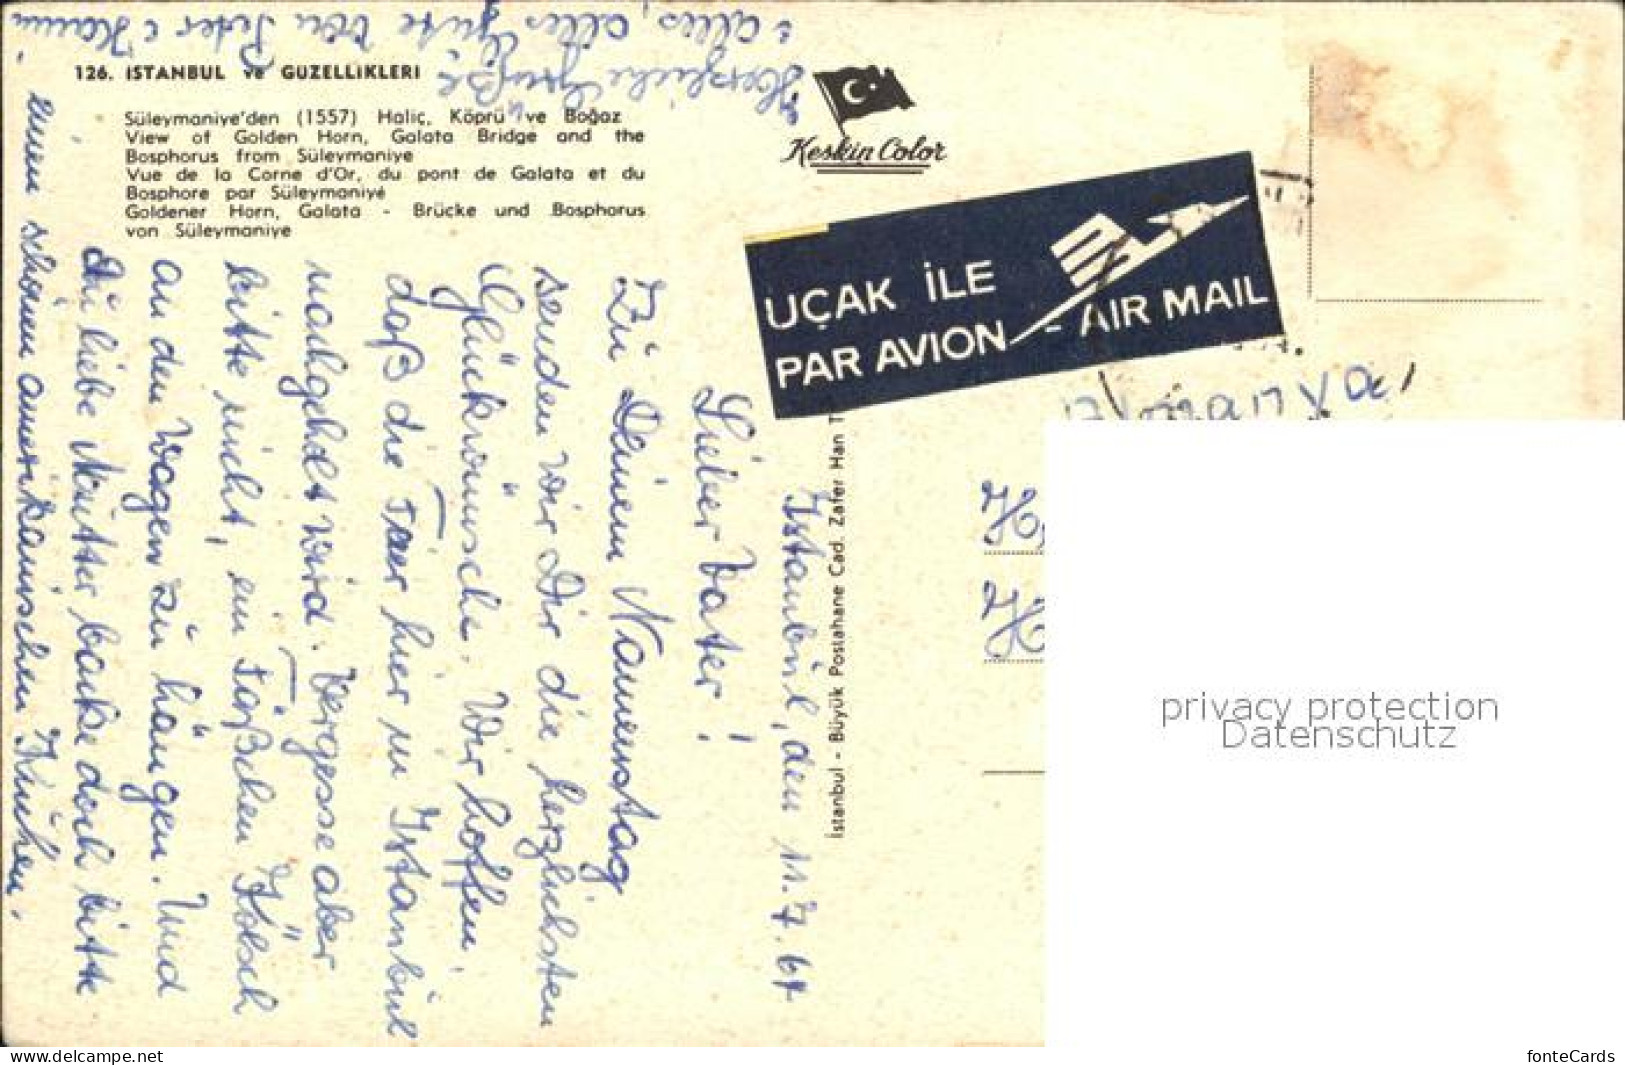 126. ISTANBUL ve GÜZELLİKLERİ
Süleymaniye'den (1557) Haliç, Köprü ve Boğaz
View of Golden Horn, Galata Bridge and the
Bosphorus from Süleymaniye
Vue de la Corne d'Or, du pont de Galata et du
Bosphore par Süleymaniyé
Goldener Horn, Galata - Brücke und Bosphorus
von Süleymaniye
Keskin Color
UÇAK İLE
PAR AVION - AIR MAIL
İstanbul - Büyük Postahane Cad. Zafer Han
Istanbul, den 11.7.67
Lieber Vater!
Zu Deinem Namenstag
senden wir Dir die herzlichsten
Glückwünsche. Wir hoffen,
daß die Feier hier in Istanbul
nachgeholt wird. Vergesse aber
bitte nicht, ein Fäßchen Kölsch
an den Wagen zu hängen. Und
Du liebe Mutter backe doch bitte
einen schönen amerikanischen Kuchen.
Herzliche Grüße
alles, alles Gute von Peter
Almanya
privacy protection
Datenschutz
www.delcampe.net
fonteCards